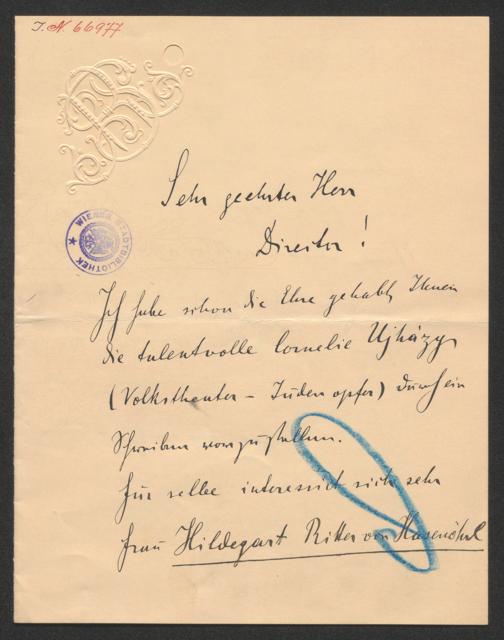 I. N. 66977
WIENER STADTBIBLIOTHEK
Sehr geehrter Herr
Director!
Ich habe schon die Ehre gehabt, Ihnen
die talentvolle Cornelie Ujházy
(Volkstheater - Süden opfer) durch ein
Schreiben vorzustellen.
Für selbe interessirt sich sehr
Frau Hildegart Ritter von Hasenöhrl